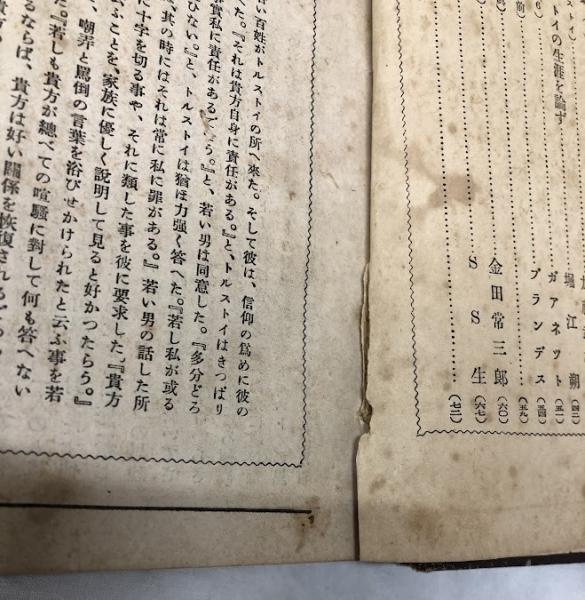 トイの生涯を論ず
堀江朔
ガアネツト (五一)
ブランデス (五四)
(五九)
金田常三郎 (六〇)
SS生 (六七)
(七二)
い百姓がトルストイの所へ來た。そして彼は、信仰の爲めに彼の
た。『それは貴方自身に責任がある。』と、トルストイはきつぱり
實私に責任があるでせう。』と、若い男は同意した。『多分どろ
ひない。』と、トルストイは猶ほ力强く答へた。『若し私が或る
其の時にはそれは常に私に罪がある。』若い男の話した所
に十字を切る事や、それに類した事を彼に要求した。『貴方
ふことを、家族に優しく說明して見ると好かつたらう。』
、嘲弄と罵倒の言葉を浴びせかけられたと云ふ事を若
た。『若しも貴方が總べての喧騷に對して何も答へない
るならば、貴方は好い關係を恢復される